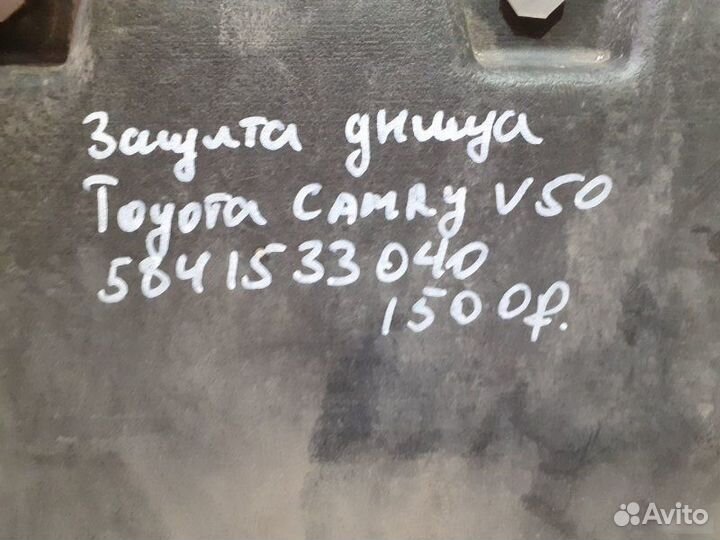 Защита днища
Toyota CAMRY V50
5841533040
1500р.
Avito